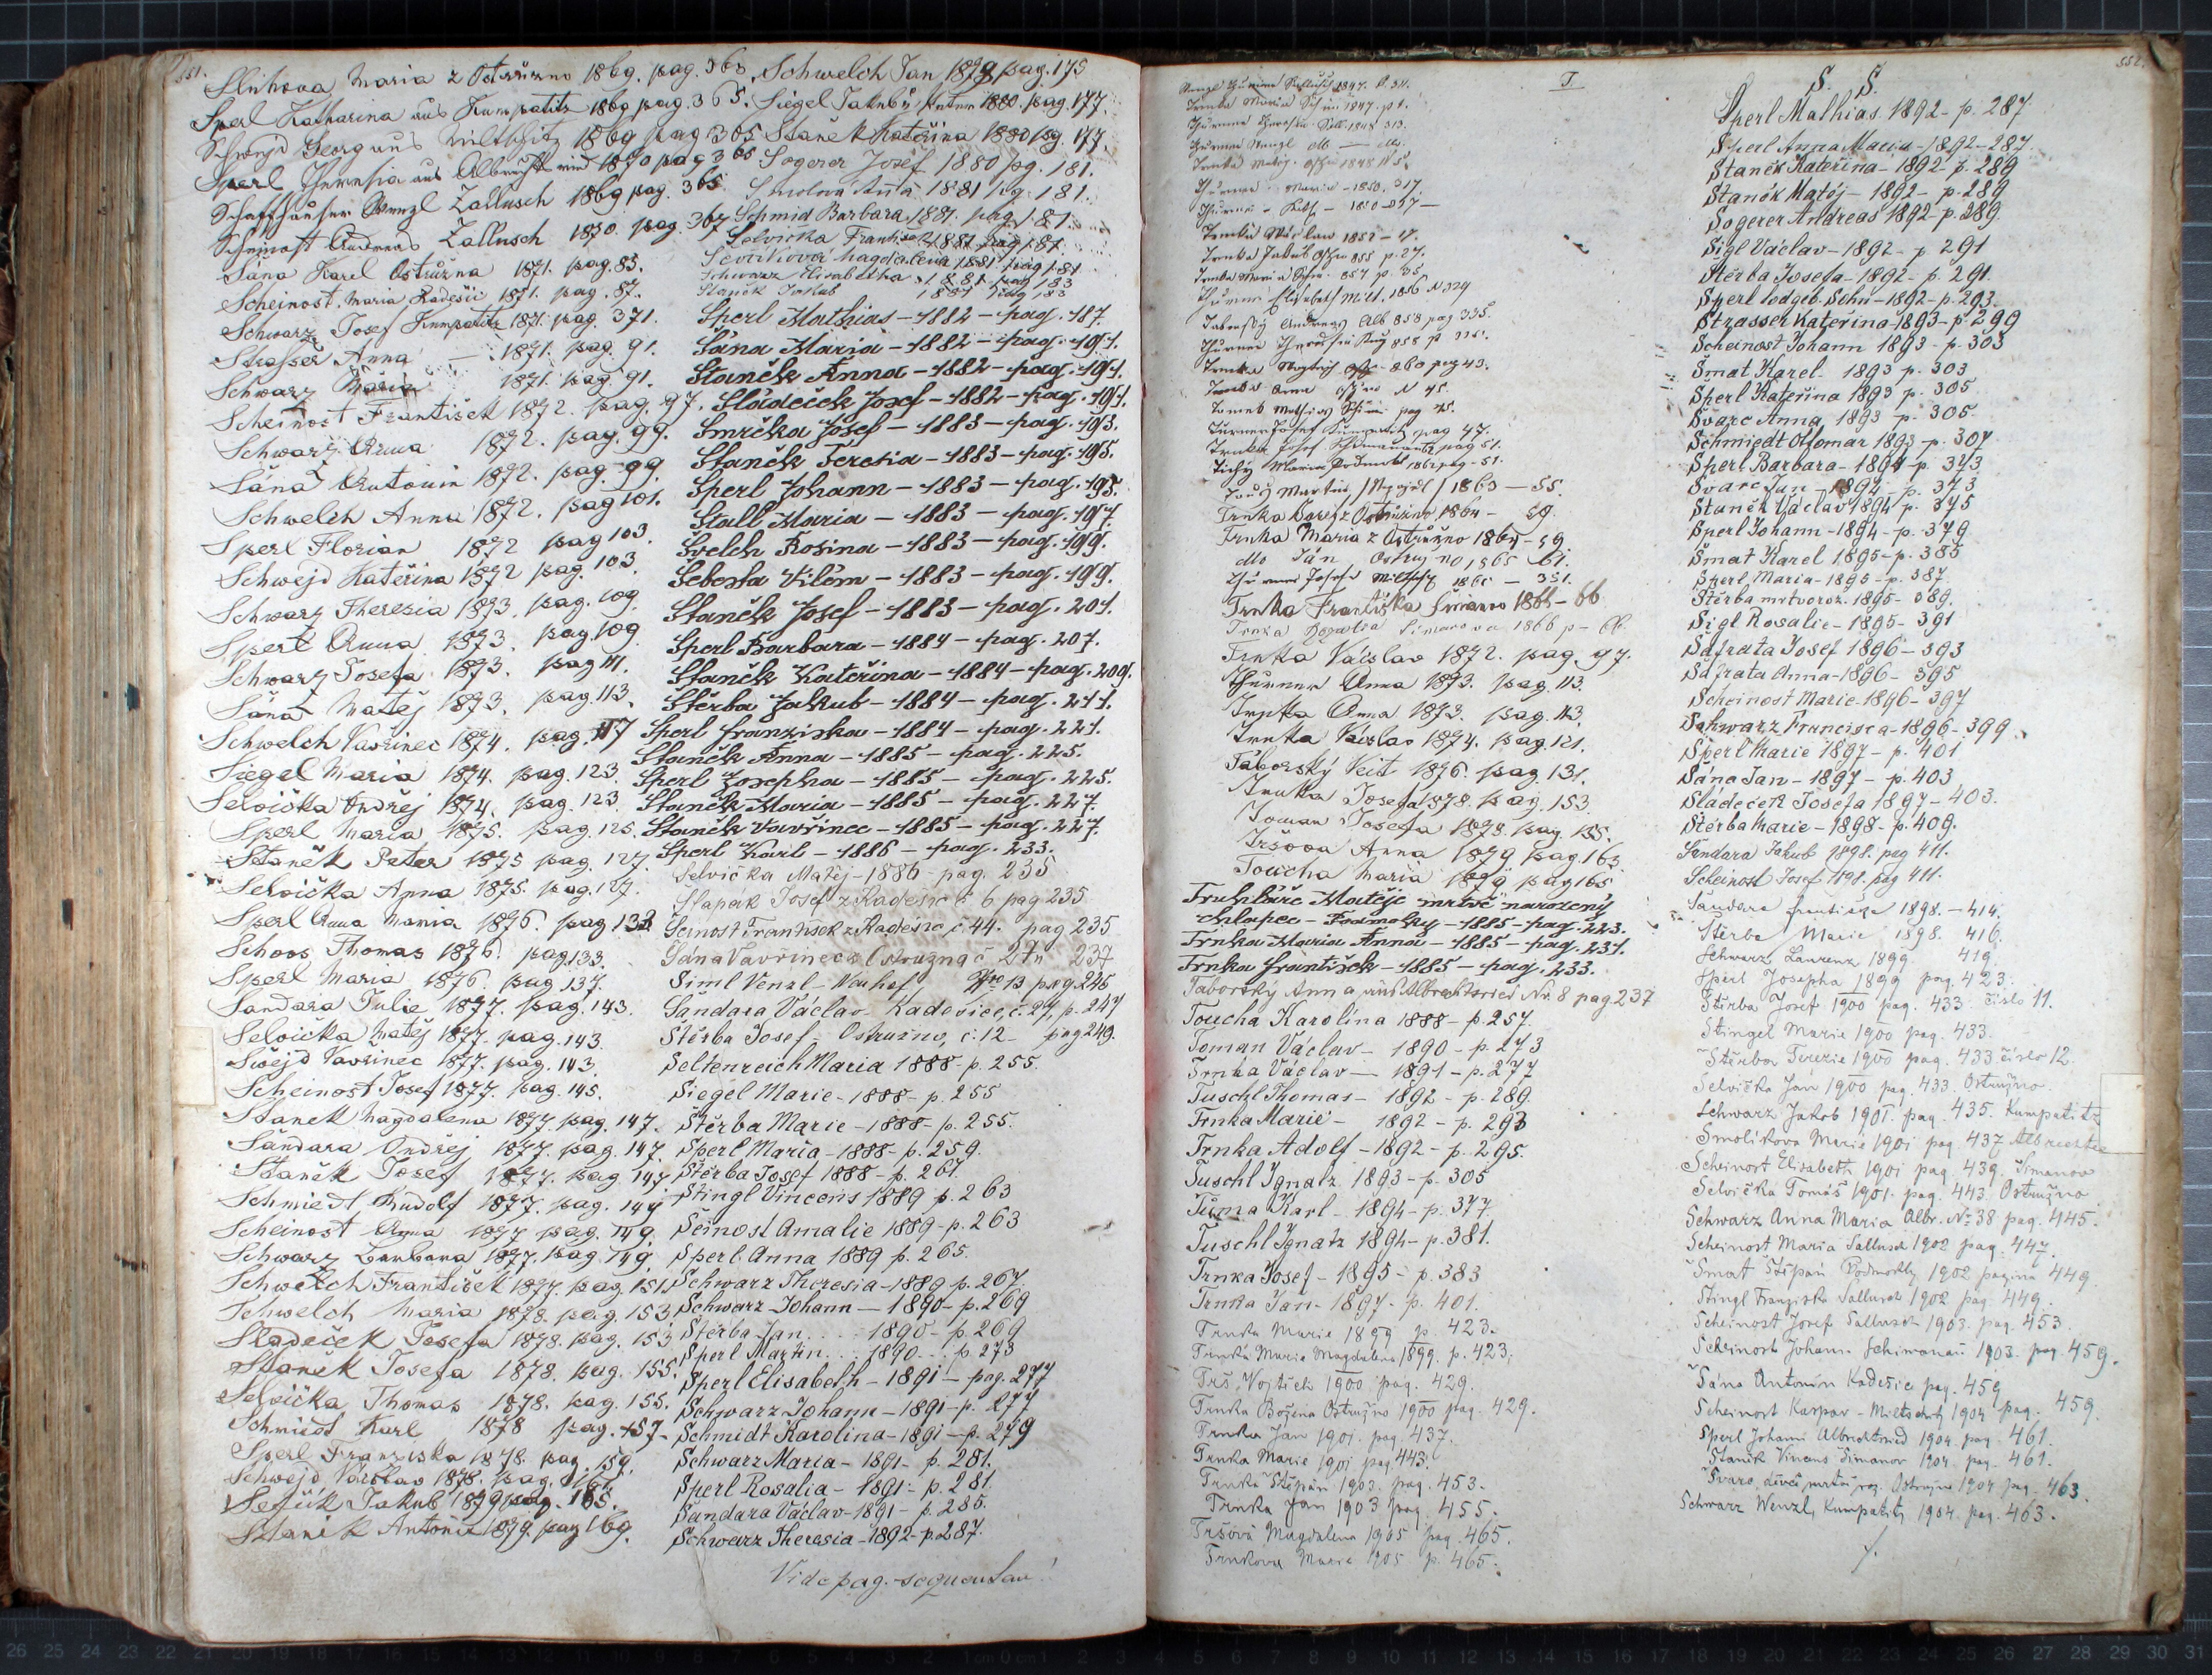 551.
Sluhova Maria z Ostružno 1869. pag. 363
Sperl Katharina aus Kumpatitz 1869 pag. 365.
Schwejd Georg aus Miltschitz 1869 pag 365
Sperl Theresia aus Albrechtsried 1870 pag 365
Schaffhauser Wenzl Zallusch 1869 pag. 365
Scheinost Andreas Zallusch 1870. pag. 367
Šána Karel Ostružna 1871. pag. 83.
Scheinost Maria Kadešic 1871. pag. 87.
Schwarz Josef Kumpatitz 1871. pag. 371.
Strasser Anna — 1871. pag. 91.
Schwarz Maria 1871. pag. 91.
Scheinost František 1872. pag. 97.
Schwarz Anna 1872. pag. 99.
Šána Antonin 1872. pag. 99
Schwelch Anna 1872. pag 101.
Sperl Florian 1872 pag 103.
Schwejd Kateřina 1872 pag. 103
Schwarz Theresia 1873. pag. 109
Sperl Anna 1873. pag. 109
Schwarz Josefa 1873. pag 111.
Šána Matěj 1873. pag. 113.
Schwelch Vavřinec 1874. pag. 117
Siegel Maria 1874. pag. 123
Selvička Ondřej 1874. pag. 123.
Sperl Maria 1875. pag. 125.
Staněk Peter 1875 pag. 127.
Selvička Anna 1875. pag. 127.
Sperl Anna Maria 1876. pag 133
Schoos Thomas 1876. pag 133.
Sperl Maria 1876. pag 137.
Šandara Julie 1877. pag. 143.
Selvička Matěj 1877. pag. 143.
Šwejd Vavřinec 1877. pag. 143.
Scheinost Josef 1877. pag. 145.
Staněk Magdalena 1877. pag. 147.
Šandara Ondřej 1877. pag. 147.
Staněk Josef 1877. pag. 147
Schmiedt Rudolf 1877. pag. 147
Scheinost Anna 1877 pag. 149.
Schwarz Barbara 1877. pag 149.
Schwelch František 1877. pag. 151.
Schwelch Maria 1878. pag. 153.
Sladeček Josefa 1878. pag. 153
Staněk Josefa 1878. pag. 155.
Selvička Thomas 1878. pag. 155.
Schmidt Karl 1878 pag. 157.
Sperl Franziska 1878. pag. 159.
Schwejd Václav 1878. pag. 161.
Sefčik Jakub 1879 pag. 165.
Staněk Antonie 1879. pag 169.
Schwelch Jan 1879 pag. 175
Siegel Jakub 1880. pag. 177
Staněk Kateřina 1880 pg. 177
Sogerer Josef 1880 pg. 181.
Smolova Anna 1881 pg. 181.
Schmid Barbara 1881. pag. 181
Selvička Františka 1881 pag 181
Magdalena 1881 pag 181
Schwarz Elisabetha 1881 pag 183
Staněk Jakub 1881 pag 183
Sperl Mathias – 1882 – pag. 187.
Šána Maria – 1882 – pag. 191.
Staněk Anna – 1882 – pag. 191.
Sládeček Josef – 1882 – pag. 191.
Smrčka Josef – 1883 – pag. 193.
Staněk Teresia – 1883 – pag. 195.
Sperl Johann – 1883 – pag. 195.
Stall Maria – 1883 – pag. 197.
Švelch Rosina – 1883 – pag. 199.
Šebesta Vilém – 1883 – pag. 199.
Staněk Josef – 1883 – pag. 201.
Sperl Barbara – 1884 – pag. 207.
Staněk Kateřina – 1884 – pag. 209.
Štěrba Jakub – 1884 – pag. 211.
Sperl Franziska – 1884 – pag. 221.
Staněk Anna – 1885 – pag. 225.
Sperl Josepha – 1885 – pag. 225.
Staněk Maria – 1885 – pag. 227.
Staněk Vavřinec – 1885 – pag. 227.
Sperl Karl – 1886 – pag. 233.
Selvička Matěj – 1886 – pag. 235
Slapák Josef z Kadešic č 6 pag 235
Šeinost František z Kadešic č 44. pag 235
Šána Vavřinec z Ostružna č 27 n 237
Siml Venzl – Neuhof, Nro 13 pag 245
Šandara Václav – Kadešice, č. 27, p. 247
Štěrba Josef – Ostružno, č. 12 – pag 249.
Seltenreich Maria 1888 – p. 255.
Siegel Marie – 1888 – p. 255
Štěrba Marie – 1888 – p. 255.
Sperl Maria – 1888 – p. 259.
Štěrba Josef 1888 – p. 261.
Stingl Vincens 1889 p. 263
Šeinost Amalie 1889 – p. 263
Sperl Anna 1889 p. 265.
Schwarz Theresia – 1889 p. 267.
Schwarz Johann – 1890 – p. 269
Štěrba Jan . . . 1890 – p. 269
Sperl Martin . . . 1890 . . p. 273
Sperl Elisabeth – 1891 – pag. 277
Schwarz Johann – 1891 – p. 277
Schmidt Karolina – 1891 – p. 279
Schwarz Maria – 1891 – p. 281.
Sperl Rosalia – 1891 – p. 281.
Šandara Václav – 1891 – p. 285.
Schwarz Theresia – 1892 – p. 287.
Vide pag. sequentem!
T.
Trnka Maria 1847. p 1.
Trnka Václav 1852 – 17.
Trnka Jakub 855 p. 27.
Thurner Elisabeth Milt. 1856 N 329
Taborsky Andreas Alb 858 pag 335.
Trnka Anna N 45.
Turner Josef Kumpatitz pag 47.
Trnka Josef pag 51.
Tichý Maria Podmokl 1862 pag – 51.
Martin 1863 – 55.
Trnka Karel z Ostružno 1864 – 59.
Trnka Maria z Ostružno 1864 – 59
dto Ján Ostružno 1865 61.
Thurner Josef Miltschitz 1865 – 351.
Trnka Františka Šimanov 1866 – 66
Trnka Šimanova 1866 p –
Trnka Václav 1872. pag. 97.
Thurner Anna 1873. pag. 113.
Trnka Anna 1873. pag. 113.
Trnka Václav 1874. pag. 121.
Taborský Veit 1876. pag. 131.
Trnka Josefa 1878. pag. 153
Toman Josefa 1878. pag. 155.
Tršova Anna 1879 pag. 163
Toucha Maria 1879 pag 165
Truhláře Matěje mrtvě narozený
chlapec – Podmokly – 1885 – pag. 223.
Trnka Maria Anna – 1885 – pag. 231.
Trnka František – 1885 – pag. 233.
Taborský Anna aus Albrechtsried Nr. 8 pag 237
Toucha Karolina 1888 – p. 257.
Toman Václav – 1890 – p. 273
Trnka Václav – 1891 – p. 277
Tuschl Thomas – 1892 – p. 289.
Trnka Marie – 1892 – p. 293
Trnka Adolf – 1892 – p. 295.
Tuschl Ignatz 1893 – p. 305
Tůma Karl – 1894 – p. 377
Tuschl Ignatz 1894 – p. 381.
Trnka Josef – 1895 – p. 383
Trnka Jan – 1897 – p. 401.
Trnka Marie 1899 p. 423.
Trnka Marie Magdalena 1899. p. 423.
Trš, Vojtěch 1900 pag. 429.
Trnka Božena Ostružno 1900 pag. 429.
Trnka Jan 1901. pag. 437.
Trnka Marie 1901 pag. 443.
Trnka Štěpán 1903. pag. 453.
Trnka Jan 1903 pag. 455.
Tršová Magdalena 1905 pag. 465.
Trnkova Marie 1905 p. 465.
552.
S. Š.
Sperl Mathias 1892 – p. 287.
Sperl Anna Maria – 1892 – 287.
Staněk Kateřina – 1892 – p. 289
Staněk Matěj – 1892 – p. 289
Sogerer Andreas 1892 – p. 289
Sigl Václav – 1892 – p 291
Štěrba Josefa – 1892 – p. 291
Sperl todgeb. Sohn – 1892 – p. 293.
Strasser Kateřina – 1893 – p. 299
Scheinost Johann 1893 – p. 303
Šmat Karel – 1893 p. 303
Sperl Kateřina 1893 p. 305
Švarc Anna 1893 p. 305
Schmiedt Ottomar 1893 p. 307
Sperl Barbara – 1894 p. 373
Švarc Jan – 1894 p. 373
Staněk Václav 1894 p. 375
Sperl Johann – 1894 – p. 379
Šmat Karel 1895 – p. 385
Sperl Maria – 1895 – p. 387
Štěrba mrtvoroz. 1895 – 389.
Sigl Rosalie – 1895 – 391
Šafrata Josef 1896 – 393
Šafrata Anna – 1896 – 395
Scheinost Marie – 1896 – 397
Schwarz Francisca – 1896 – 399
Sperl Marie 1897 – p. 401
Šána Jan – 1897 – p. 403
Sládeček Josefa 1897 – 403.
Štěrba Marie – 1898 – p. 409.
Šandara Jakub 1898. pag 411.
Scheinost Josef 1898. pag 411.
Šandara Františka 1898. – 414.
Štěrba Marie 1898. 416.
Schwarz Laurenz 1899. 419.
Sperl Josepha 1899 pag. 423.
Štěrba Josef 1900 pag. 433. číslo 11.
Stingel Marie 1900 pag. 433.
Štěrba Terezie 1900 pag. 433 číslo 12.
Selvička Jan 1900 pag. 433. Ostružno.
Schwarz Jakob 1901. pag. 435. Kumpatitz
Smolíkova Marie 1901 pag. 437
Scheinost Elisabeth 1901 pag. 439. Šimanov
Selvička Tomáš 1901. pag. 443. Ostružno
Schwarz Anna Maria Albr. No 38 pag. 445.
Scheinost Maria Sallusch 1902 pag. 447.
Šmat Štěpán Podmokly 1902 pagina 449.
Stingl Franziska Sallusch 1902 pag. 449.
Scheinost Josef Sallusch 1903. pag. 453
Scheinost Johann Schimanau 1903. pag. 459.
Šána Antonín Kadešic pag. 459
Scheinost Kaspar – Miltschitz 1904 pag. 459.
Sperl Johann Albrechtsried 1904. pag. 461.
Staněk Vincens Šimanov 1904. pag. 461.
Švarc, děvče mrtvě roz. Ostružno 1904 pag. 463.
Schwarz Wenzl, Kumpatitz 1904. pag. 463.